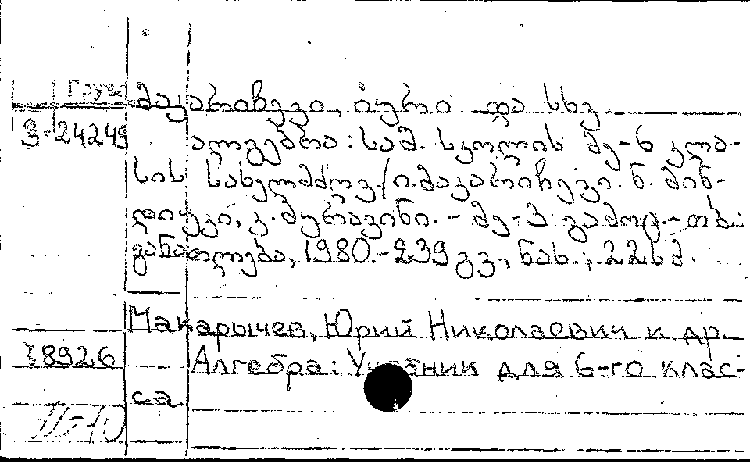 Груз
მაკარიჩევი, იური და სხვ
3-24249
ალგებრა: საშ. სკოლის მე-6 კლა-
სის სახელმძღვ./ი.მაკარიჩევი. ნ. მინ-
დიუკი, კ. მურავინი. - მე-3 გამოც.-თბ.:
განათლება, 1980.-239 გვ., ნახ.; 22სმ.
Макарычев, Юрий Николаевич и др.
18926
Алгебра: Учебник для 6-го клас-
са.